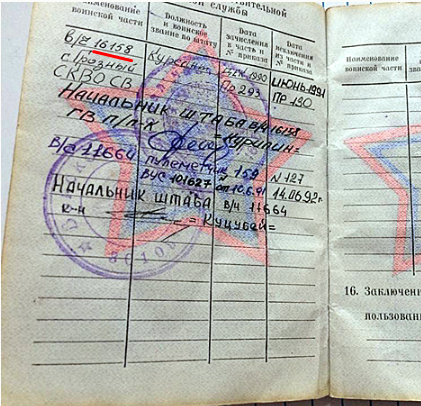 действительной
службы
Наименование воинской части
Должность и воинское звание по штату
Дата зачисления в часть и № приказа
Дата исключения из части и № приказа
в/ч 16158
г. Грозный
СКВО СВ
Курсант
1990
Пр 293
июнь 1991
ПР 190
Начальник штаба в/ч 16158
ГВ П/П-К
=Курилин=
в/ч 11664
пулеметчик
ВУС 101627
159
от 10.6.91
N 127
14.06.92г.
Начальник штаба в/ч 11664
к-н
=Куцубей=
Наименование
воинской части
16. Заключен
пользован